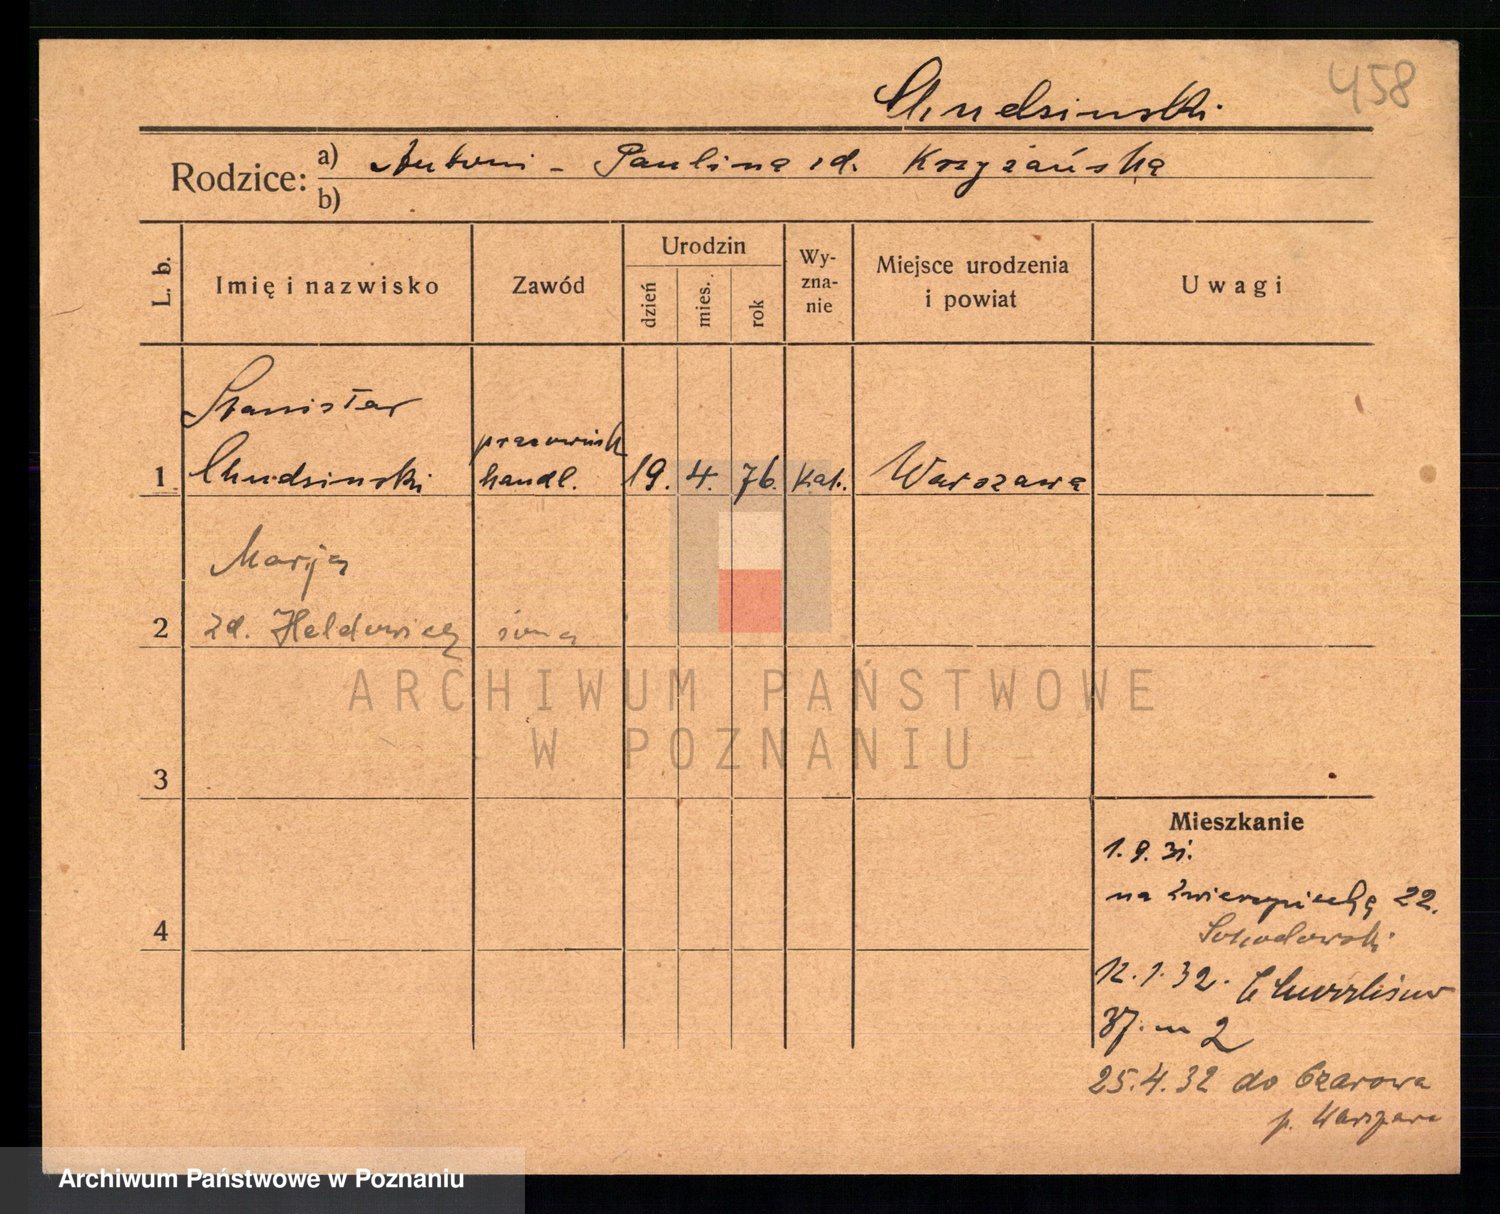 458
Chudzinski
Rodzice: a) Antoni - Paulina zd. Krzyżańska
b)
L. b.
Imię i nazwisko
Zawód
Urodzin
dzień
mies.
rok
Wy-
zna-
nie
Miejsce urodzenia
i powiat
Uwagi
Stanisław
pracownik
1 Chudzinski handl. 19. 4. 76. Kat. Warszawa
Marja
2 zd. żona
3
Mieszkanie
1. 9. 31.
na Zwierzyniecką 22.
4
12.1.32.
37. m 2
25.4.32 do
p. Warszawa
ARCHIWUM PAŃSTWOWE
W POZNANIU
Archiwum Państwowe w Poznaniu